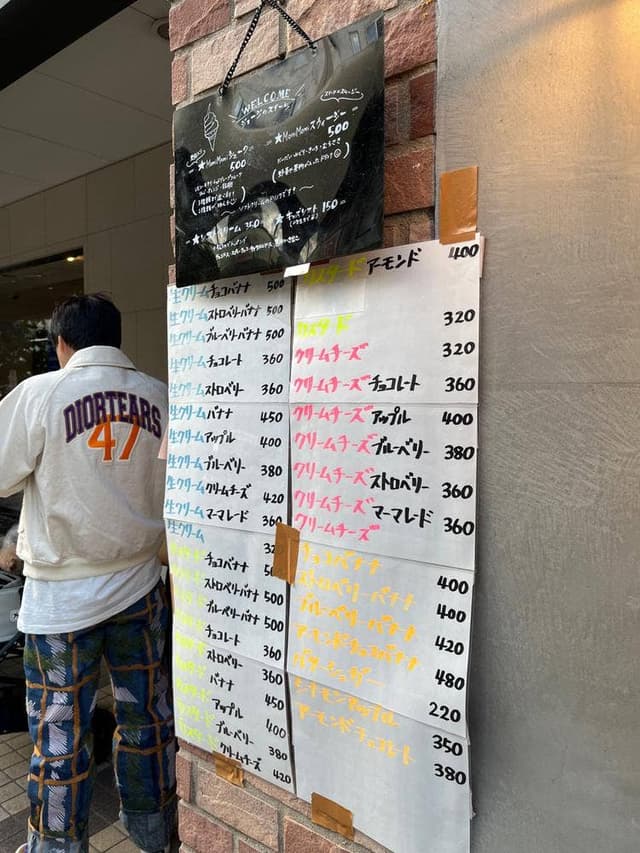 WELCOME
★MomMomシェーク
500
★MomMomスウィージー
500
350
★キッズシート 150
生クリームチョコバナナ 500
生クリームストロベリーバナナ 500
生クリームブルーベリーバナナ 500
生クリームチョコレート 360
生クリームストロベリー 360
生クリームバナナ 450
生クリームアップル 400
生クリームブルーベリー 380
生クリームクリームチーズ 420
生クリームマーマレード 360
生クリーム
カスタードチョコバナナ
カスタードストロベリーバナナ 500
カスタードブルーベリーバナナ 500
カスタードチョコレート 360
カスタードストロベリー 360
カスタードバナナ 450
カスタードアップル 400
カスタードブルーベリー 380
カスタードクリームチーズ 420
カスタードアーモンド 400
カスタード 320
クリームチーズ 320
クリームチーズチョコレート 360
クリームチーズアップル 400
クリームチーズブルーベリー 380
クリームチーズストロベリー 360
クリームチーズマーマレード 360
クリームチーズ
チョコバナナ 400
ストロベリーバナナ 400
ブルーベリーバナナ 420
アーモンドチョコバナナ 480
バターシュガー 220
シナモンアップル 350
アーモンドチョコレート 380
DIORTEARS
47